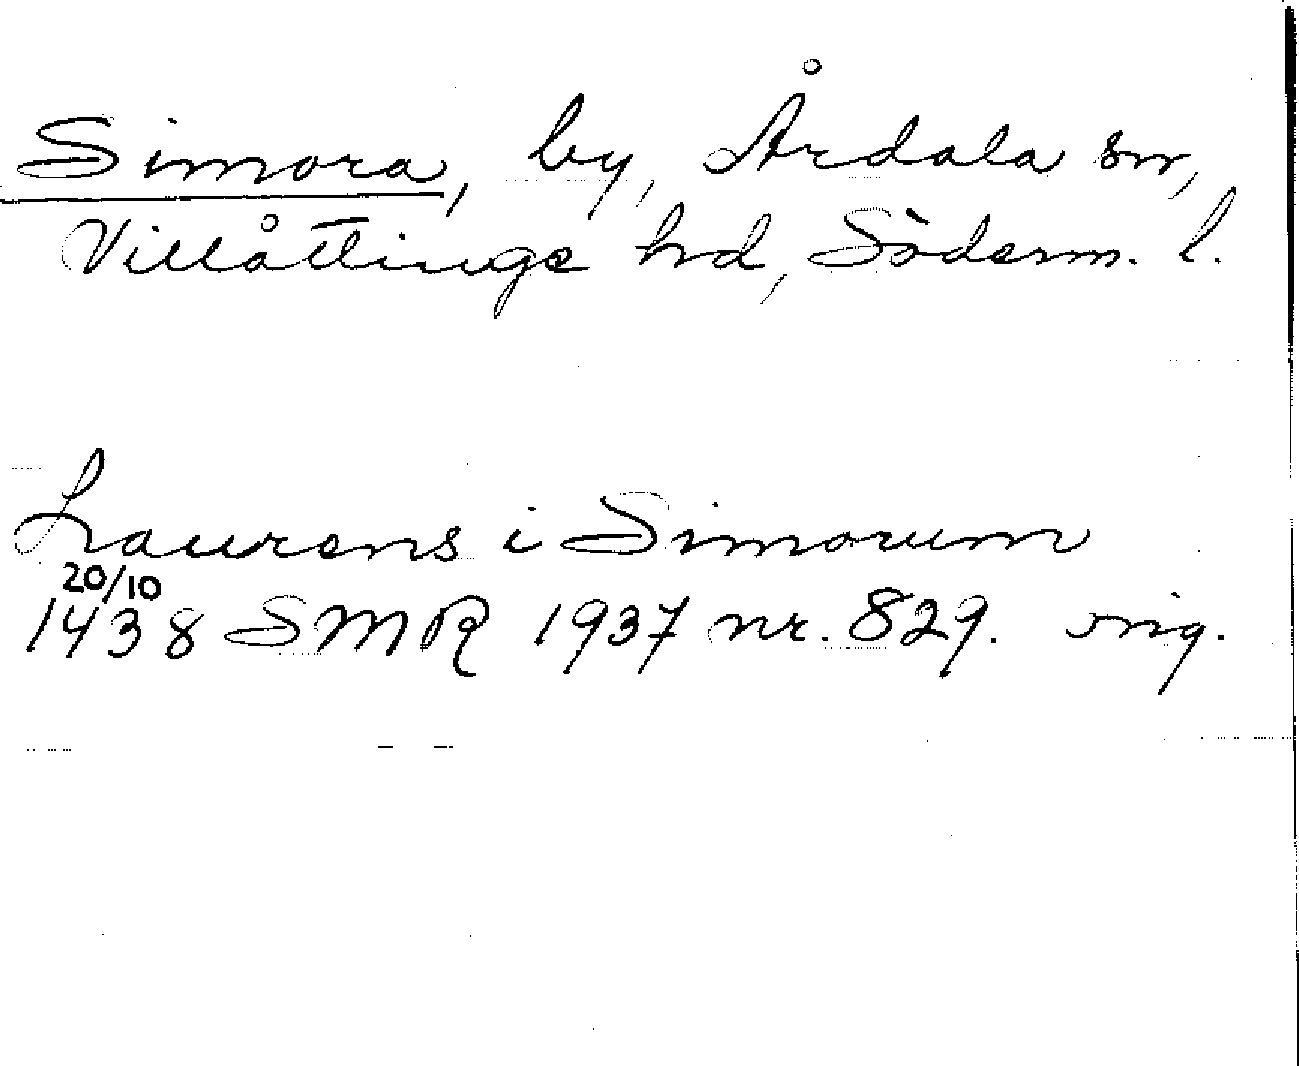 Simora, by, Årdala sn,
Villåttinge hd, Söderm. l.
Laurens i Simorum
20/10
1438 SMR 1937 nr. 829. orig.